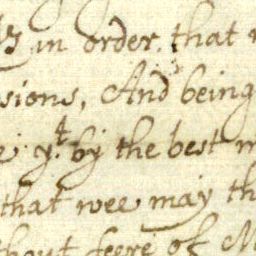 in order that
sions, And being
e yt by the best m
that wee may th
thout feere of M